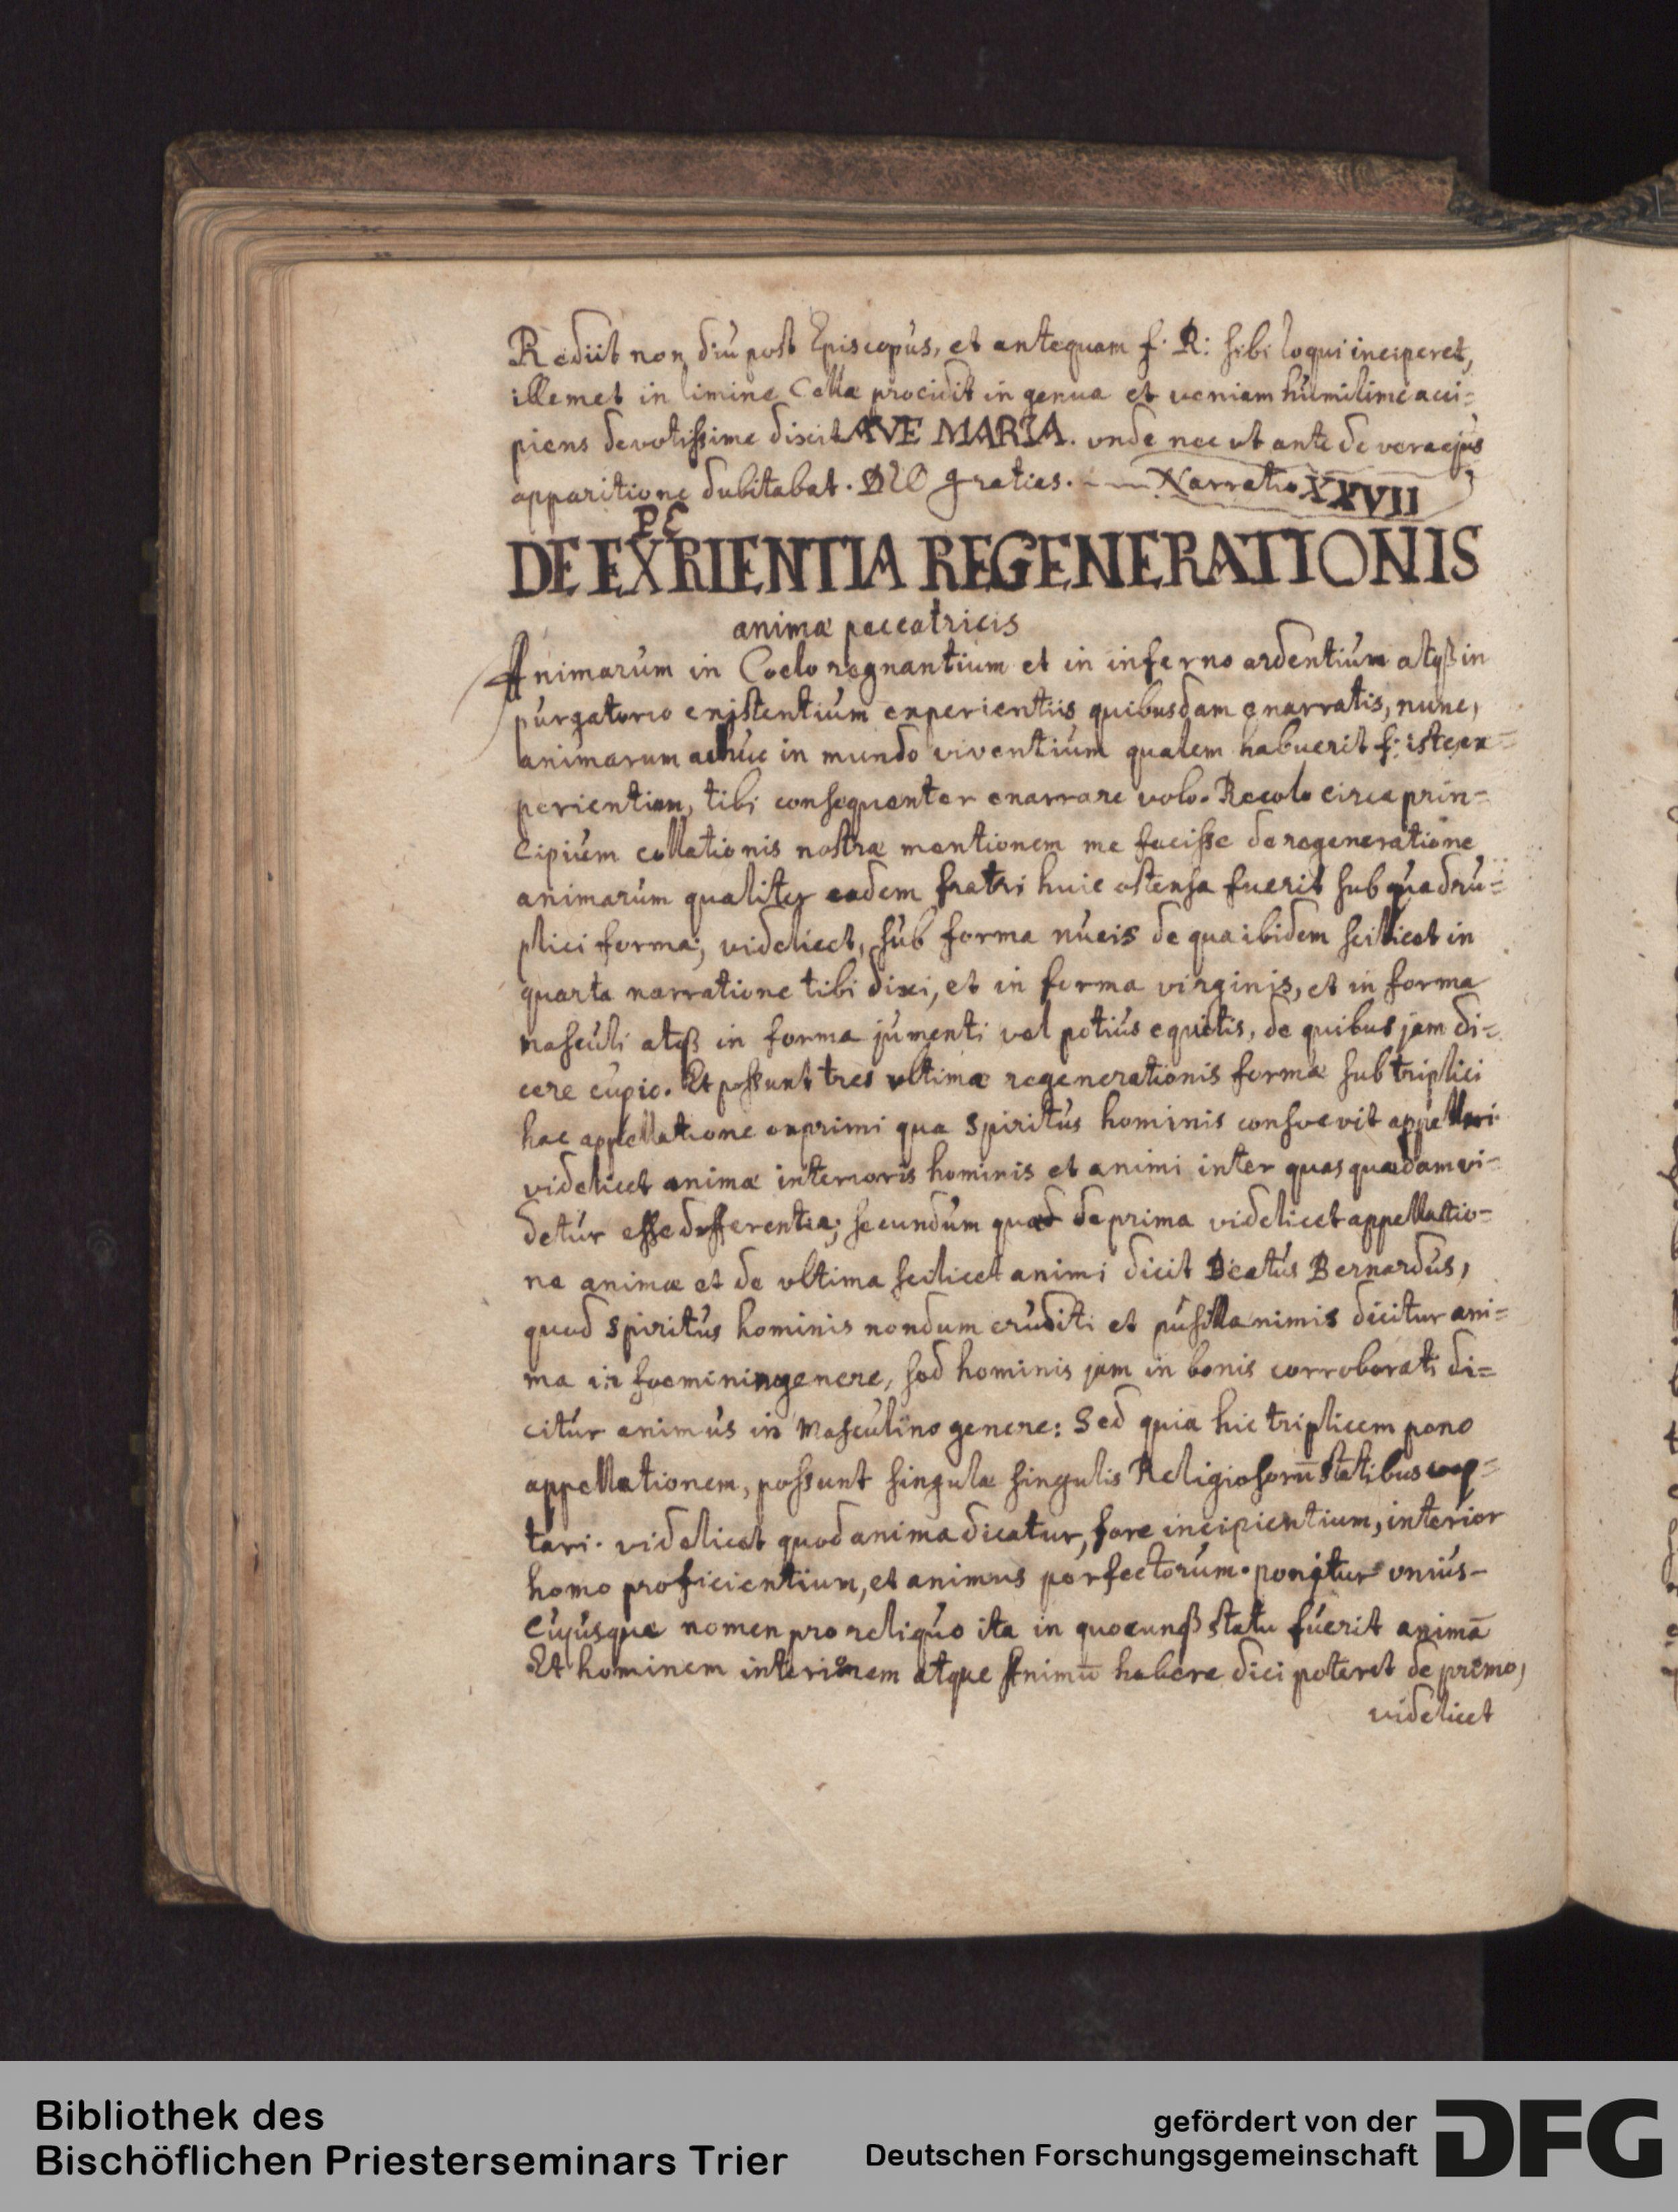 Rediit non diu post Episcopus, et antequam f. R: sibi loqui inciperet,
illemet in limine Cellæ procidit in genua et veniam humilime acci=
piens devotissime dixit AVE MARIA. unde nec ut ante de vera ejus
apparitione dubitabat. DEO gratias. Narratio XXVII
PE
DE EXRIENTIA REGENERATIONIS
animæ peccatricis
Animarum in Coelo regnantium et in inferno ardentium atqß in
purgatorio existentium experientiis quibusdam enarratis, nunc,
animarum adhuc in mundo viventium qualem habuerit f: iste ex=
perientiam, tibi consequenter enarrare volo. Recolo circa prin=
cipium collationis nostræ mentionem me fecisse de regeneratione
animarum qualiter eadem fratri huic ostensa fuerit sub quadru=
plici forma, videlicet, sub forma nucis de qua ibidem scilicet in
quarta narratione tibi dixi, et in forma virginis, et in forma
masculi atqß in forma jumenti vel potius equitis, de quibus jam di=
cere cupio. Et possunt tres ultimæ regenerationis formæ sub triplici
hac appellatione exprimi qua spiritus hominis consuevit appellari
videlicet animæ interioris hominis et animi inter quas quædam vi=
detur esse differentia; secundum quod de prima videlicet appellatio=
ne animæ et de ultima scilicet animi dicit Beatus Bernardus,
quod spiritus hominis nondum eruditi et pusillanimis dicitur ani=
ma in foeminino genere, sed hominis jam in bonis corroborati di=
citur animus in masculino genere: Sed quia hic triplicem pono
appellationem, possunt singulæ singulis Religiosorū statibus coap=
tari. videlicet quod anima dicatur, fore incipientium, interior
homo proficientium, et animus perfectorum. ponitur unius-
cujusque nomen pro reliquo ita in quocunqß statu fuerit animā
Et hominem interiorem atque Animū habere dici poterit de primo,
videlicet
Bibliothek des
Bischöflichen Priesterseminars Trier
gefördert von der
Deutschen Forschungsgemeinschaft
DFG